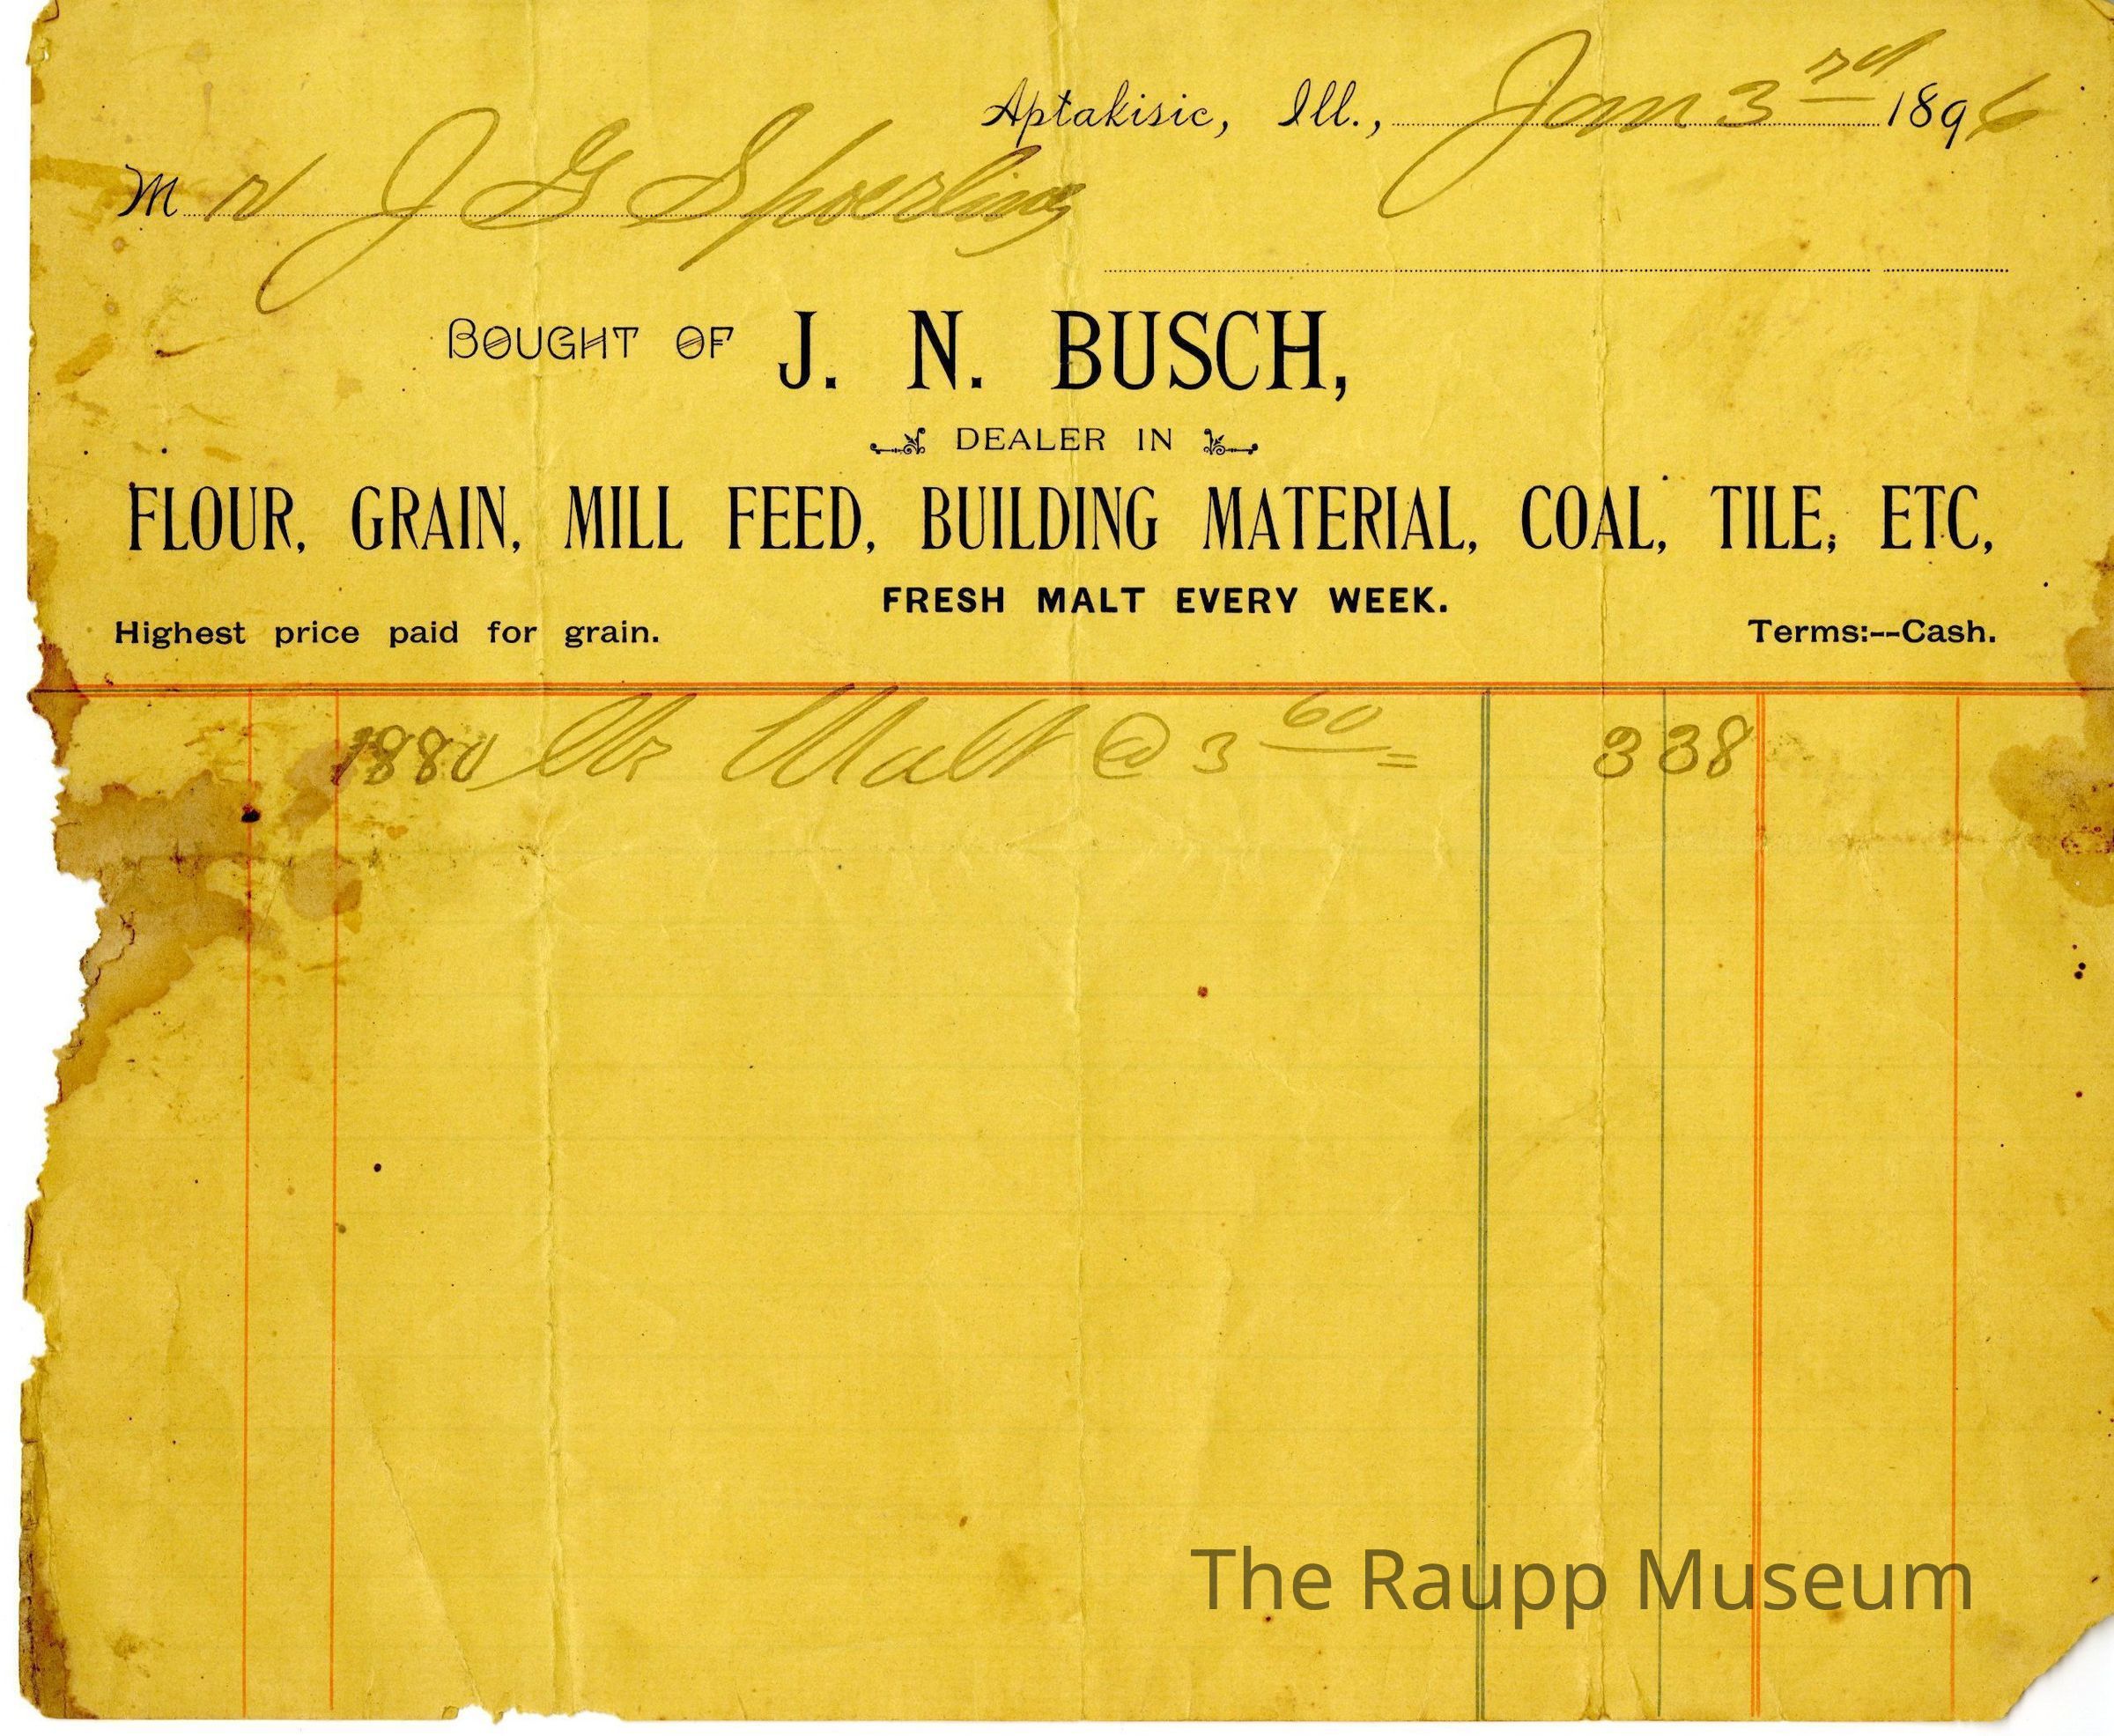 Aptakisic, Ill., Jan 3rd 1896
Mr J G Spoerling
BOUGHT OF J. N. BUSCH,
DEALER IN
FLOUR, GRAIN, MILL FEED, BUILDING MATERIAL, COAL, TILE, ETC,
FRESH MALT EVERY WEEK.
Highest price paid for grain. Terms:--Cash.
1880 lbs Malt @ 3 60 = 3 38
The Raupp Museum